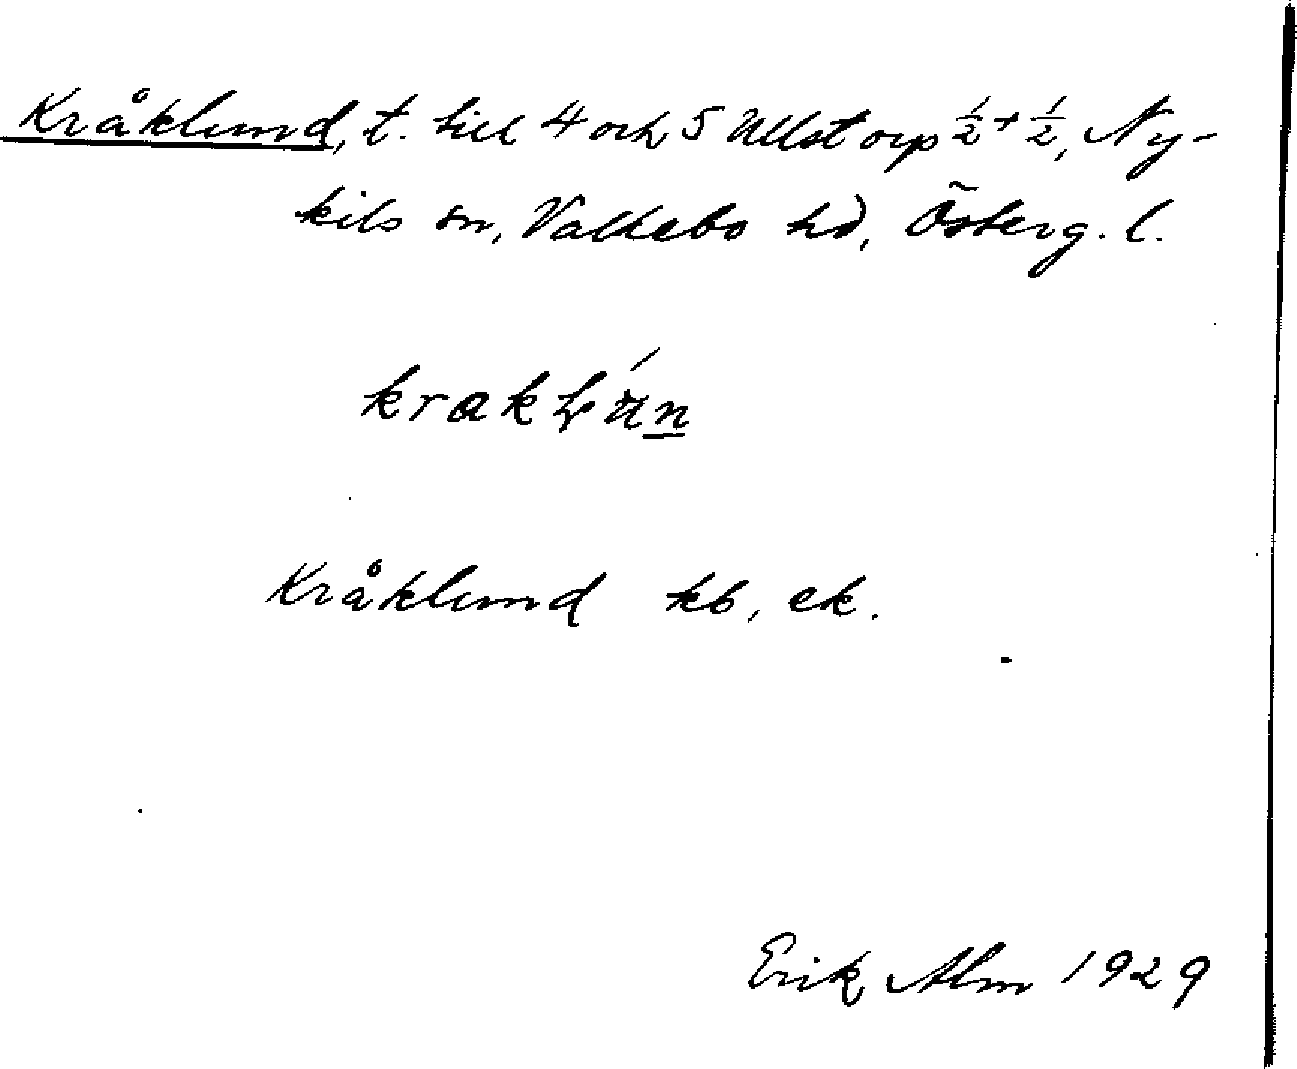 Kråklund, t. till 4 och 5 Ullstorp ½ + ½, Ny-
kils sn, Valkebo hd, Österg. l.
Kråklund kb, ek.
Erik Alm 1929